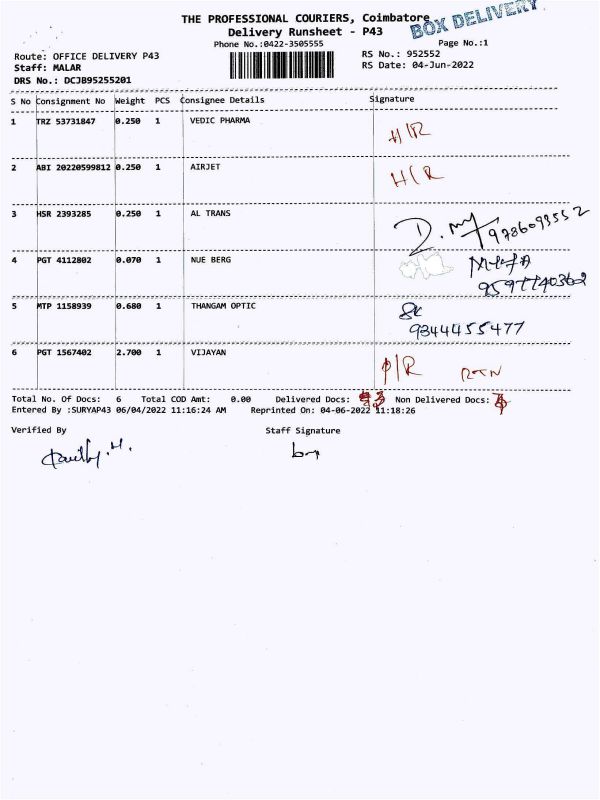 THE PROFESSIONAL COURIERS, Coimbatore
BOX DELIVERY
Delivery Runsheet - P43
Phone No.:0422-3505555
Page No.:1
Route: OFFICE DELIVERY P43
RS No.: 952552
Staff: MALAR
RS Date: 04-Jun-2022
DRS No.: DCJB95255201
S No Consignment No Weight PCS Consignee Details Signature
1 TRZ 53731847 0.250 1 VEDIC PHARMA
H/R
2 ABI 20220599812 0.250 1 AIRJET
H/R
3 HSR 2393285 0.250 1 AL TRANS
9786093552
4 PGT 4112802 0.070 1 NUE BERG
9597740362
5 MTP 1158939 0.680 1 THANGAM OPTIC
SK
9344455477
6 PGT 1567402 2.700 1 VIJAYAN
P/R RTN
Total No. Of Docs: 6 Total COD Amt: 0.00 Delivered Docs: 3 Non Delivered Docs:
Entered By :SURYAP43 06/04/2022 11:16:24 AM Reprinted On: 04-06-2022 11:18:26
Verified By Staff Signature